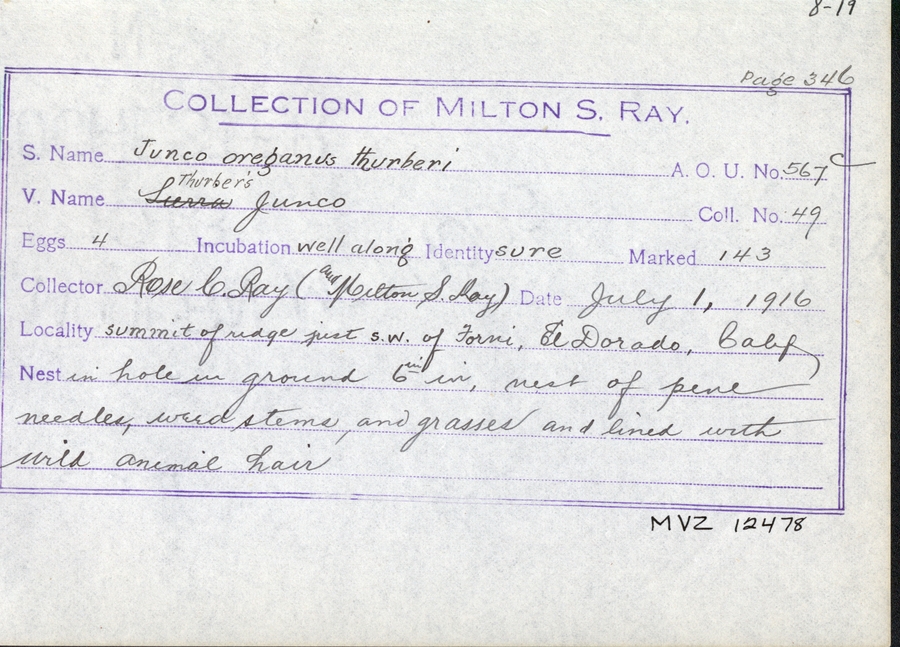 8-19
Page 346
COLLECTION OF MILTON S. RAY.
S. Name Junco oreganus thurberi A. O. U. No. 567 c
Thurber's
V. Name Sierra Junco Coll. No. 49
Eggs 4 Incubation well along Identity sure Marked 143
Collector Rose C. Ray (and Milton S. Ray) Date July 1, 1916
Locality summit of ridge just s.w. of Forni, El Dorado, Calif
Nest in hole in ground 6 in in, nest of pine
needles, weed stems, and grasses and lined with
wild animal hair
MVZ 12478